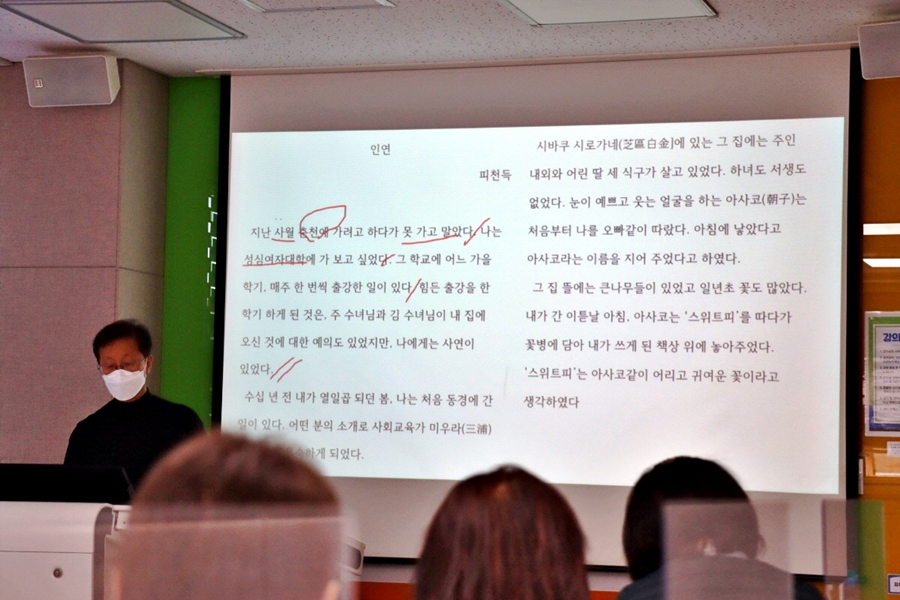 인연
피천득
지난 사월 춘천에 가려고 하다가 못 가고 말았다. 나는
성심여자대학에 가 보고 싶었다. 그 학교에 어느 가을
학기, 매주 한 번씩 출강한 일이 있다. 힘든 출강을 한
학기 하게 된 것은, 주 수녀님과 김 수녀님이 내 집에
오신 것에 대한 예의도 있었지만, 나에게는 사연이
있었다.
수십 년 전 내가 열일곱 되던 봄, 나는 처음 동경에 간
일이 있다. 어떤 분의 소개로 사회교육가 미우라(三浦)
하게 되었다.
시바쿠 시로가네(芝區白金)에 있는 그 집에는 주인
내외와 어린 딸 세 식구가 살고 있었다. 하녀도 서생도
없었다. 눈이 예쁘고 웃는 얼굴을 하는 아사코(朝子)는
처음부터 나를 오빠같이 따랐다. 아침에 낳았다고
아사코라는 이름을 지어 주었다고 하였다.
그 집 뜰에는 큰나무들이 있었고 일년초 꽃도 많았다.
내가 간 이튿날 아침, 아사코는 ‘스위트피’를 따다가
꽃병에 담아 내가 쓰게 된 책상 위에 놓아주었다.
‘스위트피’는 아사코같이 어리고 귀여운 꽃이라고
생각하였다
강의